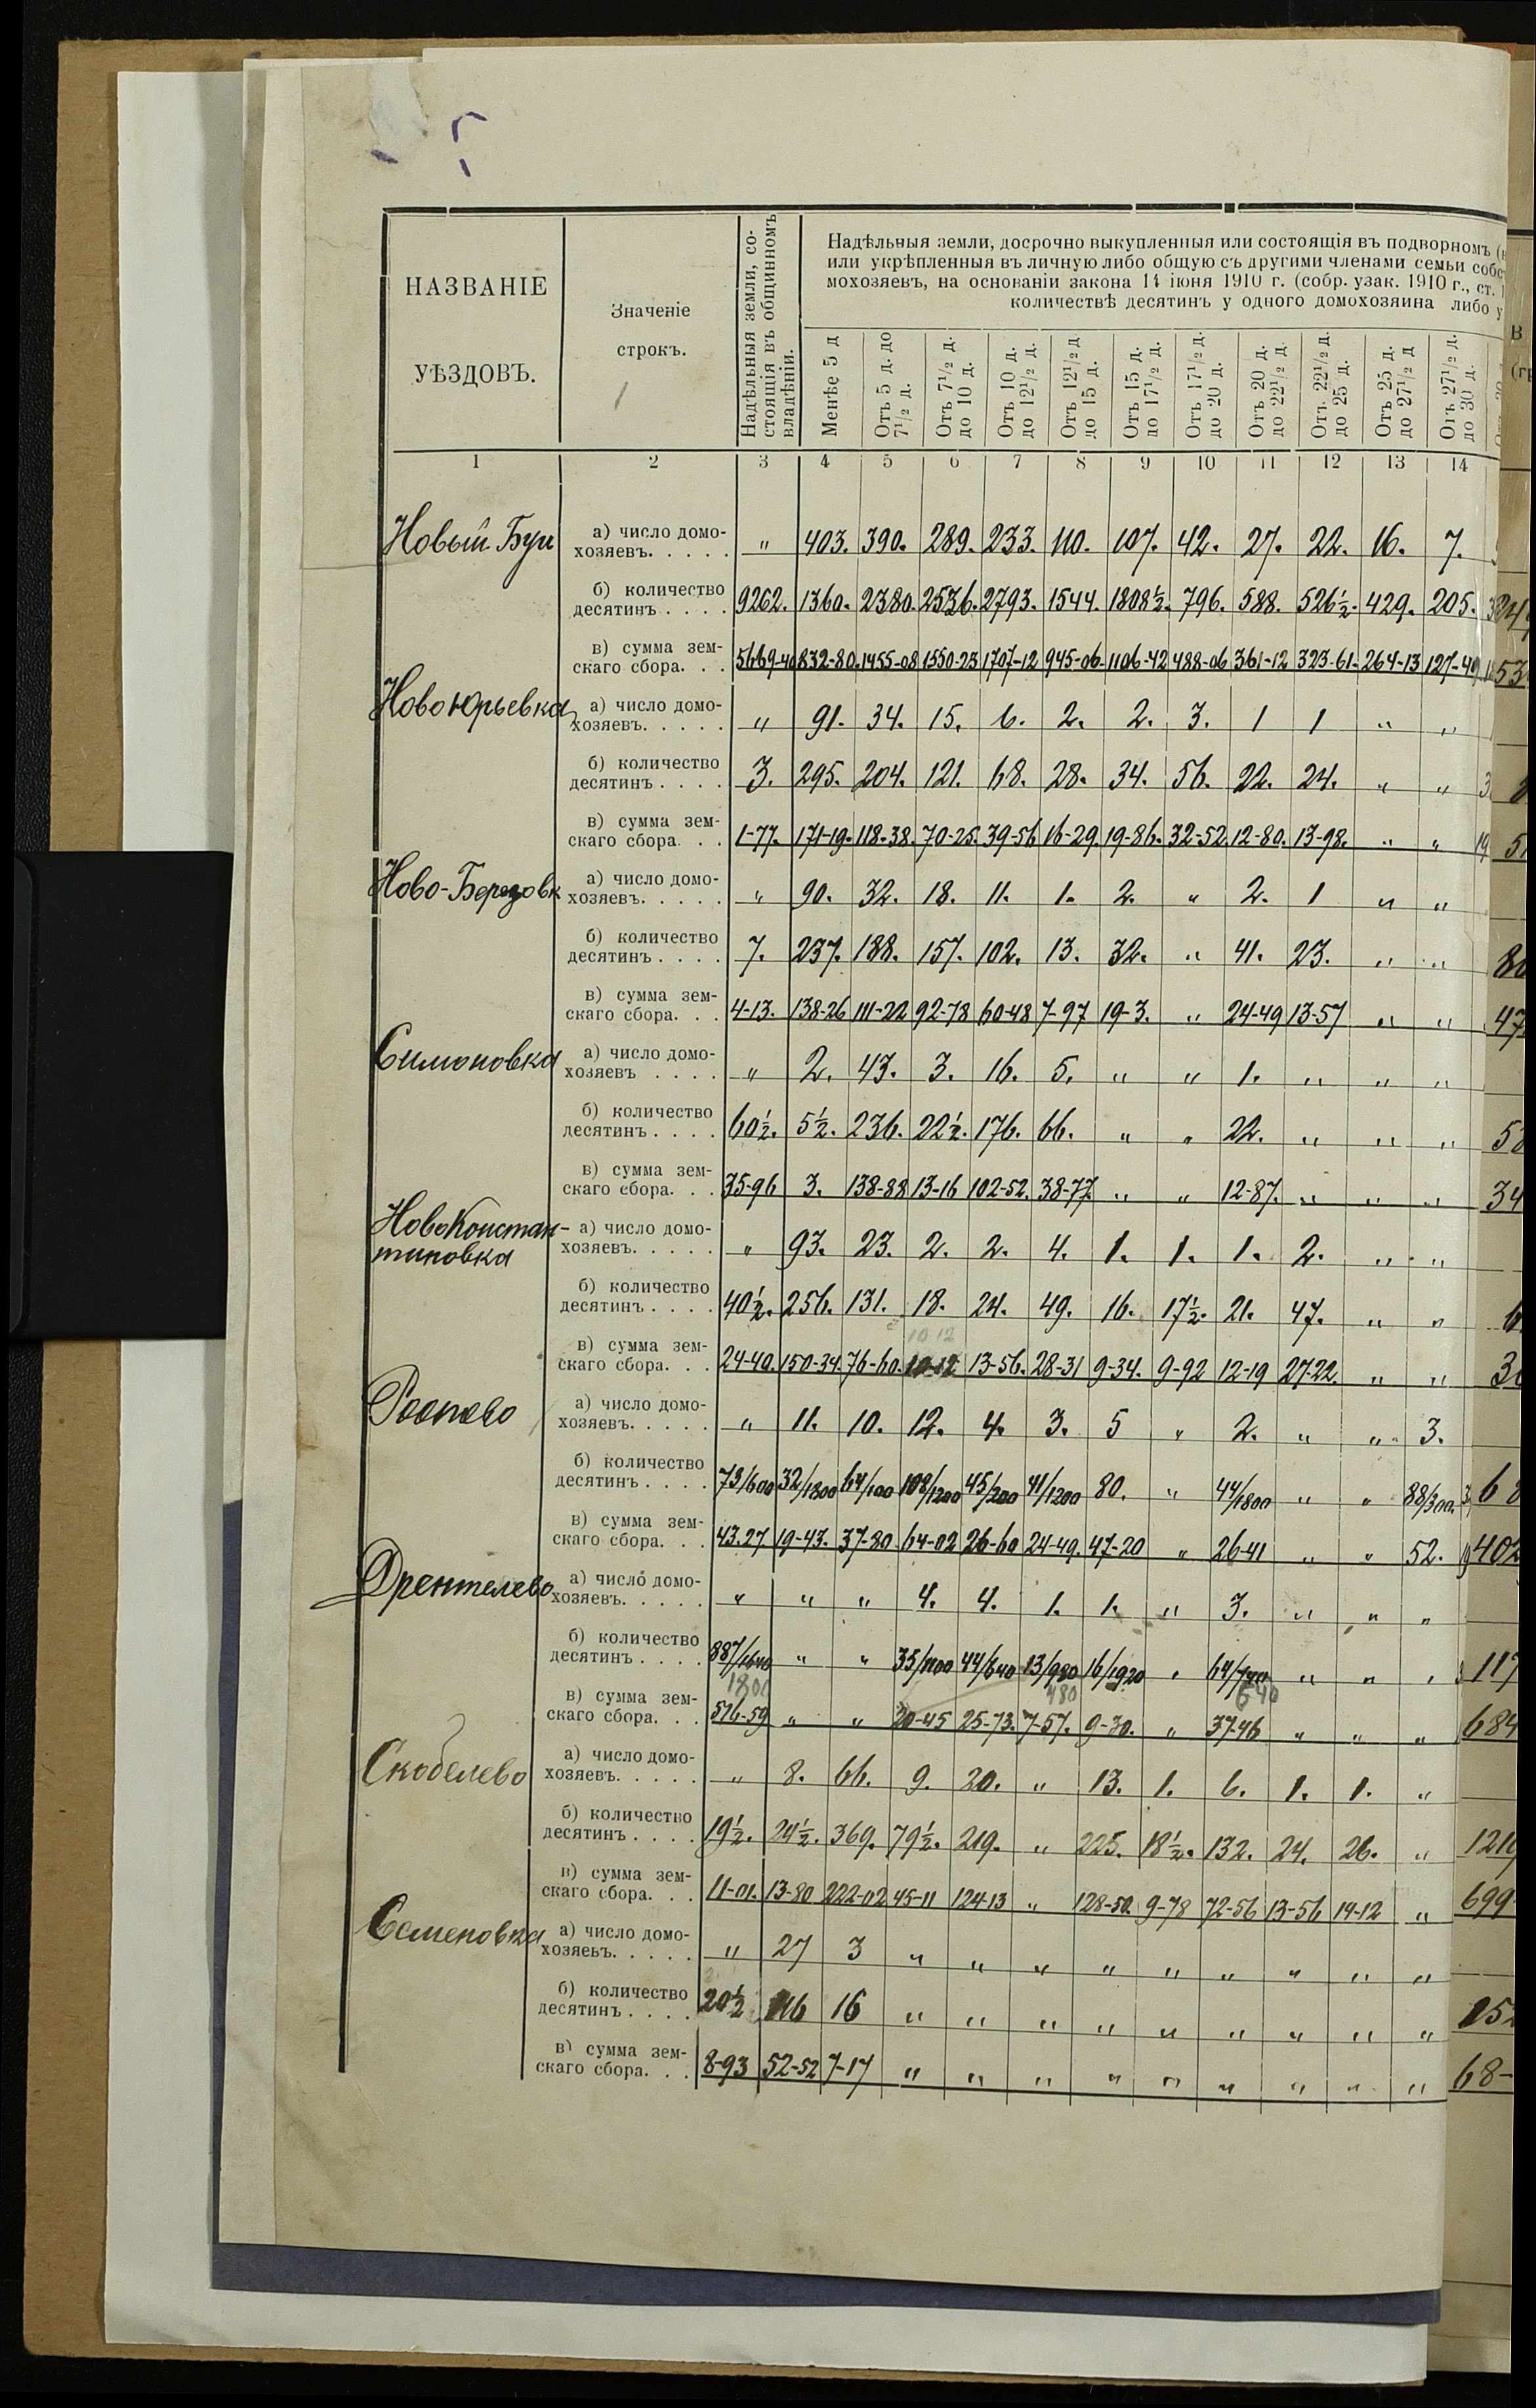 НАЗВАНІЕ
УѢЗДОВЪ.
Значеніе
строкъ.
Надѣльныя земли, со-
стоящія въ общинномъ
владѣніи.
Надѣльныя земли, досрочно выкупленныя или состоящія въ подворномъ
или укрѣпленныя въ личную либо общую съ другими членами семьи собс
мохозяевъ, на основаніи закона 14 іюня 1910 г. (собр. узак. 1910 г., ст.
количествѣ десятинъ у одного домохозяина либо у
Менѣе 5 д
Отъ 5 д. до 7½ д.
Отъ 7½ д. до 10 д.
Отъ 10 д. до 12½ д.
Отъ 12½ д до 15 д.
Отъ 15 д. до 17½ д.
Отъ 17½ д. до 20 д.
Отъ 20 д. до 22½ д.
Отъ 22½ д до 25 д.
Отъ 25 д. до 27½ д
Отъ 27½ д. до 30 д.
1 2 3 4 5 6 7 8 9 10 11 12 13 14
Новый Буг
а) число домо-
хозяевъ. . . . . " 403. 390. 289. 233. 110. 107. 42. 27. 22. 16. 7.
б) количество
десятинъ . . . . 9262. 1360. 2380. 2536. 2793. 1544. 1808½. 796. 588. 526½. 429. 205.
в) сумма зем-
скаго сбора. . . 5669-40 832-80. 1455-08 1550-23 1707-12 945-06. 1106-42 488-06 361-12 323-61. 264-13 127-49
Новоюрьевка
а) число домо-
хозяевъ. . . . . " 91. 34. 15. 6. 2. 2. 3. 1 1 " "
б) количество
десятинъ . . . . 3. 295. 204. 121. 68. 28. 34. 56. 22. 24. " "
в) сумма зем-
скаго сбора. . . 1-77. 171-19. 118-38. 70-25. 39-56 16-29. 19-86. 32-52. 12-80. 13-98. " "
Ново-Березовк
а) число домо-
хозяевъ. . . . . " 90. 32. 18. 11. 1. 2. " 2. 1 " "
б) количество
десятинъ . . . . 7. 237. 188. 157. 102. 13. 32. " 41. 23. " "
в) сумма зем-
скаго сбора. . . 4-13. 138-26 111-22 92-78 60-48 7-97 19-3. " 24-49 13-57 " "
Симоновка
а) число домо-
хозяевъ . . . . " 2. 43. 3. 16. 5. " " 1. " " "
б) количество
десятинъ . . . . 60½. 5½. 236. 22½. 176. 66. " " 22. " " "
в) сумма зем-
скаго сбора. . . 35-96 3. 138-88 13-16 102-52. 38-77. " " 12-87. " " "
НовоКонстан-
тиновка
а) число домо-
хозяевъ. . . . . " 93. 23. 2. 2. 4. 1. 1. 1. 2. " "
б) количество
десятинъ . . . . 40½. 256. 131. 18. 24. 49. 16. 17½. 21. 47. " "
10 12
в) сумма зем-
скаго сбора. . . 24-40. 150-34. 76-60. 10-12 13-56. 28-31 9-34. 9-92 12-19 27-22. " "
Роопово
а) число домо-
хозяевъ. . . . . " 11. 10. 12. 4. 3. 5 " 2. " " 3.
б) количество
десятинъ . . . . 73/600 32/1800 64/100 108/1200 45/200 41/1200 80. " 44/1800 " " 88/300.
в) сумма зем-
скаго сбора. . . 43.27 19-43. 37-80 64-02 26-60 24-49. 47-20 " 26-41 " " 52.
Дрентелево
а) число домо-
хозяевъ. . . . . " " " 4. 4. 1. 1. " 3. " " "
б) количество
десятинъ . . . . " " 44/640 13/980 16/1920 " " " "
480 640
в) сумма зем-
скаго сбора. . . 516-59 " " 20-45 25-73. 7-57. 9-30. " 37-46 " " "
Скобелево
а) число домо-
хозяевъ. . . . . " 8. 66. 9. 20. " 13. 1. 6. 1. 1. "
б) количество
десятинъ . . . . 19½. 24½. 369. 79½. 219. " 225. 18½. 132. 24. 26. "
в) сумма зем-
скаго сбора. . . 11-01. 13-80 222-02 45-11 124-13 " 128-50. 9-78 72-56 13-56 14-12 "
Семеновка
а) число домо-
хозяевъ. . . . . " 27 3 " " " " " " " " "
б) количество
десятинъ . . . . 20½ 116 16 " " " " " " " " "
в) сумма зем-
скаго сбора. . . 8-93 52-52 7-17 " " " " " " " " "